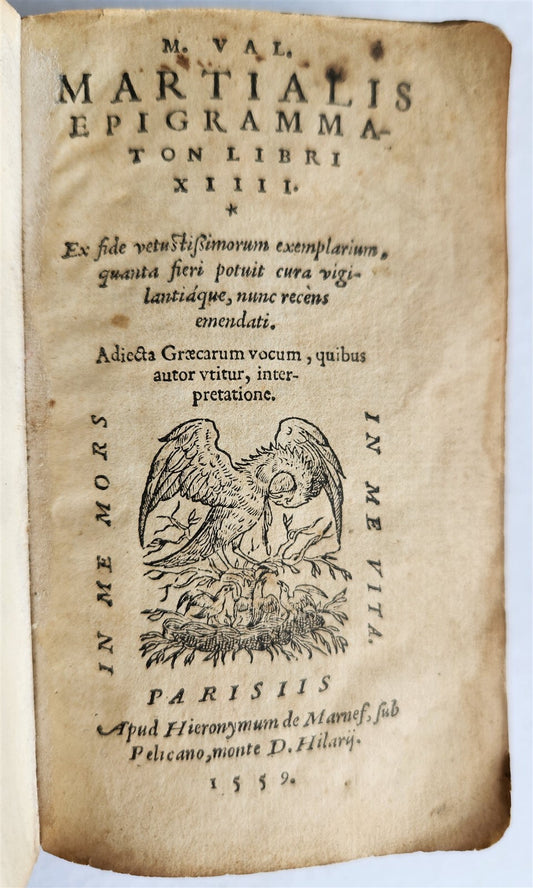 M. VAL.
MARTIALIS
EPIGRAMMA-
TON LIBRI
XIIII.
*
Ex fide vetustißimorum exemplarium,
quanta fieri potuit cura vigi-
lantiáque, nunc recèns
emendati.
Adiecta Græcarum vocum, quibus
autor vtitur, inter-
pretatione.
IN ME MORS
IN ME VITA.
PARISIIS
Apud Hieronymum de Marnef, sub
Pelicano, monte D. Hilarij.
1559.